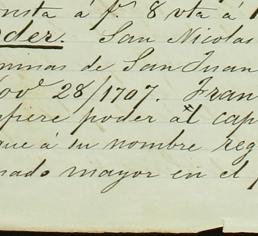 onsta á f.ª 8 vta á
oder. San Nicolas
minas de San Juan
Nov.e 28/1707. Fran
fiere poder al cap
que á su nombre reg
nado mayor en el p